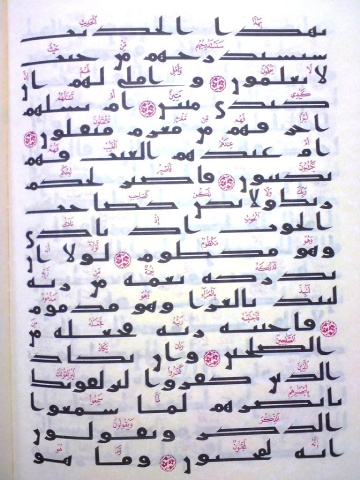 بهذا الحديث
سنستدرجهم من حيث
لا يعلمون وأملي لهم إن
كيدي متين أم تسئلهم
أجرا فهم من مغرم مثقلون
أم عندهم الغيب فهم
يكتبون فاصبر لحكم
ربك ولا تكن كصاحب
الحوت إذ نادى
وهو مكظوم لولا أن
تدركه نعمة من ربه
لنبذ بالعرا وهو مذموم
فاجتبيه ربه فجعله من
الصلحين وإن يكاد
الذين كفروا ليزلقونك
بأبصرهم لما سمعوا
الذكر ويقولون
إنه لمجنون وما هو